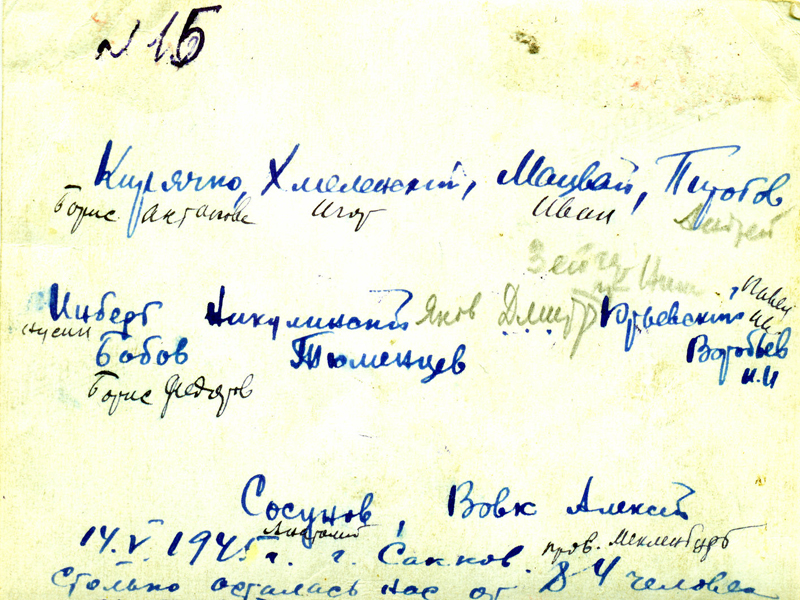 N 15
Кирячко, Хмеленский, Мацвай, Пиротов
Борис Игор Иван Андрей
Инберг Никулинский Яков Дмитр Юрьевский Павел
Бобов Тюменцев Воробьев
Борис Федоров И.И
Сосунов, Вовк Алексей
Анатолий
14.V.1945 г. г. Сакков. пров. Мекленбург
столько осталась нас от 84 человек